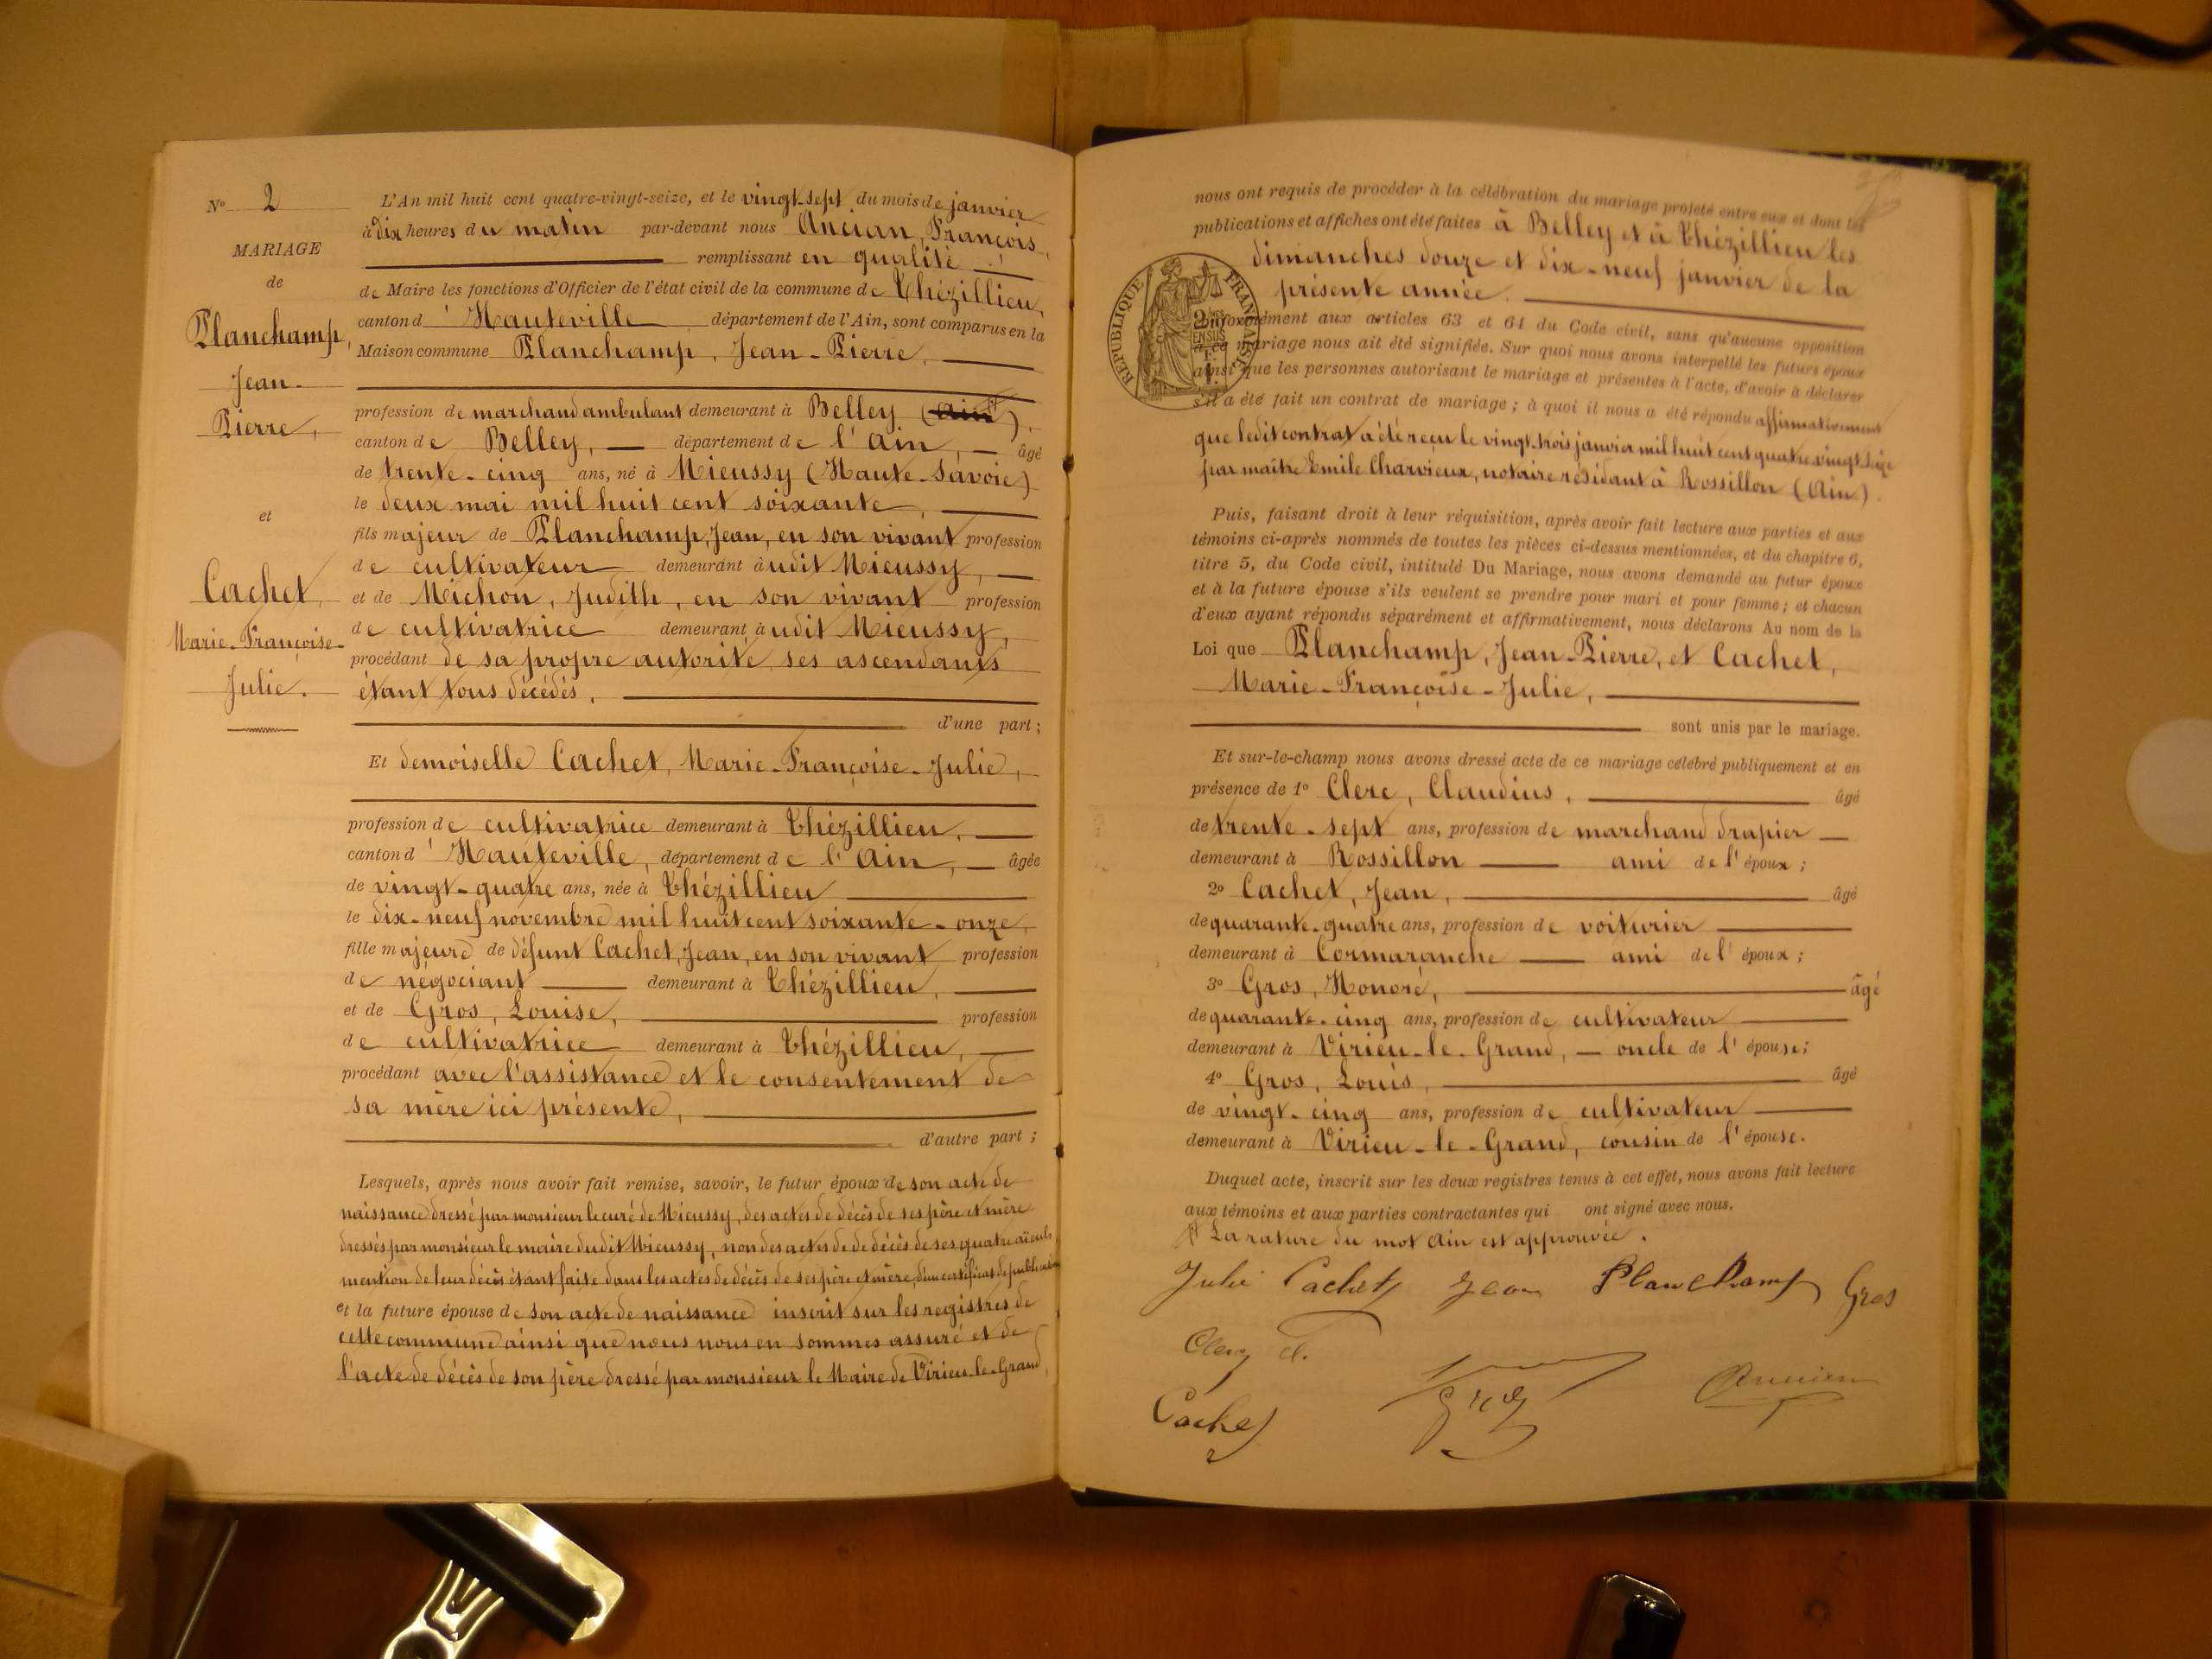 N° 2
MARIAGE
de
Planchamp,
Jean-
Pierre,
et
Cachet,
Marie-Françoise-
Julie.
L'An mil huit cent quatre-vingt-seize, et le vingt-sept du mois de janvier
à dix heures du matin par-devant nous Ancian, François,
remplissant en qualité
de Maire les fonctions d'Officier de l'état civil de la commune de Thézillieu,
canton d'Hauteville département de l'Ain, sont comparus en la
Maison commune Planchamp, Jean-Pierre,
profession de marchand ambulant demeurant à Belley (Ain),
canton de Belley, département de l'Ain, âgé
de trente-cinq ans, né à Mieussy (Haute-Savoie)
le deux mai mil huit cent soixante,
fils majeur de Planchamp, Jean, en son vivant profession
de cultivateur demeurant audit Mieussy,
et de Michon, Judith, en son vivant profession
de cultivatrice demeurant audit Mieussy,
procédant de sa propre autorité, ses ascendants
étant tous décédés,
d'une part;
Et demoiselle Cachet, Marie-Françoise-Julie,
profession de cultivatrice demeurant à Thézillieu,
canton d'Hauteville, département de l'Ain, âgée
de vingt-quatre ans, née à Thézillieu
le dix-neuf novembre mil huit cent soixante-onze,
fille majeure de défunt Cachet, Jean, en son vivant profession
de négociant demeurant à Thézillieu,
et de Gros, Louise, profession
de cultivatrice demeurant à Thézillieu,
procédant avec l'assistance et le consentement de
sa mère ici présente,
d'autre part;
Lesquels, après nous avoir fait remise, savoir, le futur époux de son acte de
naissance dressé par monsieur le curé de Mieussy, des actes de décès de ses père et mère
dressés par monsieur le maire dudit Mieussy, non des actes de décès de ses quatre aïeuls,
mention de leur décès étant faite dans les actes de décès de ses père et mère, d'un certificat de publication
et la future épouse de son acte de naissance inscrit sur les registres de
cette commune ainsi que nous nous en sommes assuré et de
l'acte de décès de son père dressé par monsieur le Maire de Virieu-le-Grand,
nous ont requis de procéder à la célébration du mariage projeté entre eux et dont les
publications et affiches ont été faites à Belley et à Thézillieu les
dimanches douze et dix-neuf janvier de la
présente année.
RÉPUBLIQUE FRANÇAISE
conformément aux articles 63 et 64 du Code civil, sans qu'aucune opposition
à ce mariage nous ait été signifiée. Sur quoi nous avons interpellé les futurs époux
ainsi que les personnes autorisant le mariage et présentes à l'acte, d'avoir à déclarer
s'il a été fait un contrat de mariage; à quoi il nous a été répondu affirmativement
que ledit contrat a été reçu le vingt-trois janvier mil huit cent quatre-vingt-seize
par maître Emile Charvieux, notaire résidant à Rossillon (Ain).
Puis, faisant droit à leur réquisition, après avoir fait lecture aux parties et aux
témoins ci-après nommés de toutes les pièces ci-dessus mentionnées, et du chapitre 6,
titre 5, du Code civil, intitulé Du Mariage, nous avons demandé au futur époux
et à la future épouse s'ils veulent se prendre pour mari et pour femme; et chacun
d'eux ayant répondu séparément et affirmativement, nous déclarons Au nom de la
Loi que Planchamp, Jean-Pierre, et Cachet,
Marie-Françoise-Julie,
sont unis par le mariage.
Et sur-le-champ nous avons dressé acte de ce mariage célébré publiquement et en
présence de 1° Clerc, Claudius, âgé
de trente-sept ans, profession de marchand drapier
demeurant à Rossillon ami de l'époux;
2° Cachet, Jean, âgé
de quarante-quatre ans, profession de voiturier
demeurant à Cormaranche ami de l'époux;
3° Gros, Honoré, âgé
de quarante-cinq ans, profession de cultivateur
demeurant à Virieu-le-Grand, oncle de l'épouse;
4° Gros, Louis, âgé
de vingt-cinq ans, profession de cultivateur
demeurant à Virieu-le-Grand, cousin de l'épouse.
Duquel acte, inscrit sur les deux registres tenus à cet effet, nous avons fait lecture
aux témoins et aux parties contractantes qui ont signé avec nous.
La rature du mot Ain est approuvée.
Julie Cachet Jean Planchamp Gros
Clerc Cl.
Cachet Gros Ancian